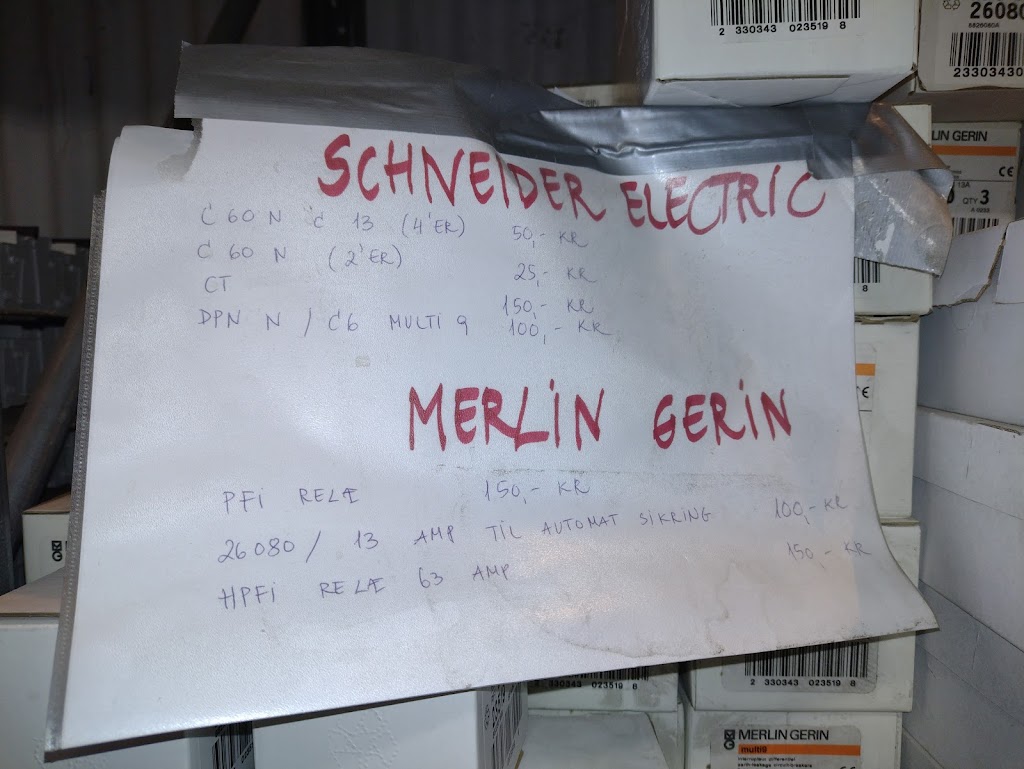 2 330343 023519 8
26080
2330430
SCHNEIDER ELECTRIC
C 60 N C 13 (4'ER) 50,- KR
C 60 N (2'ER) 25,- KR
CT 150,- KR
DPN N / C6 MULTI 9 100,- KR
MERLIN GERIN
PFI RELÆ 150,- KR
26080 / 13 AMP TIL AUTOMAT SIKRING 100,- KR
HPFI RELÆ 63 AMP 150,- KR
LIN GERIN
CE
QTY 3
8
2 330343 023519 8
2 330343 023519 8
MERLIN GERIN
multi9
interrupteur différentiel